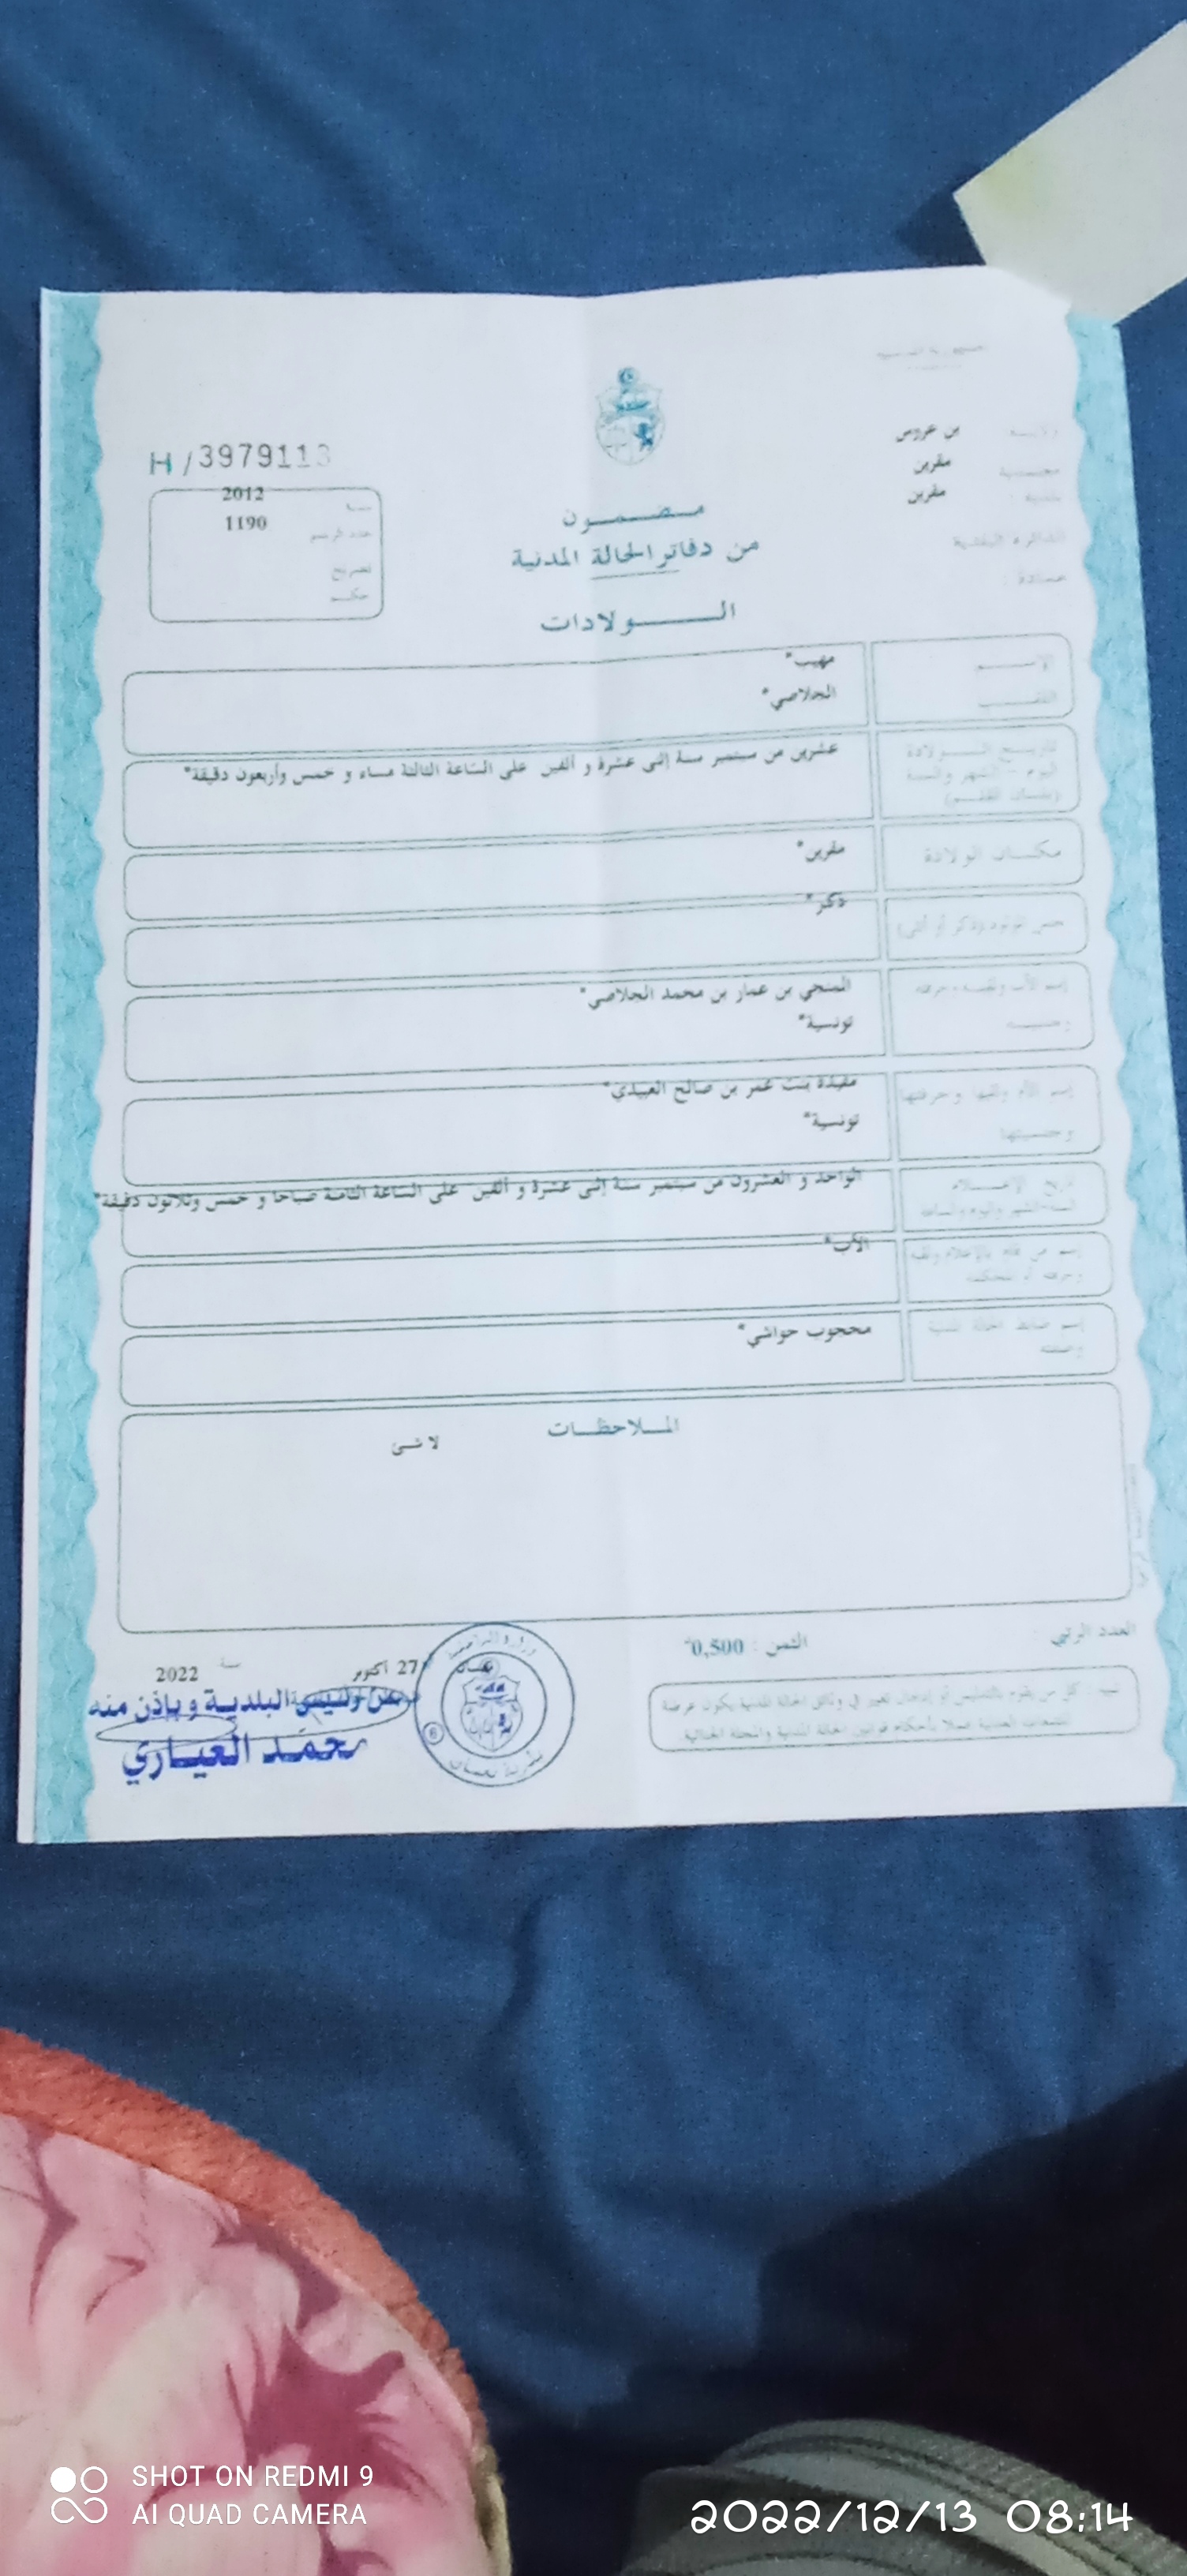 الجمهورية التونسية
ولايــة : بن عروس
معتمدية : مقرين
بلدية : مقرين
الدائرة البلدية
عمادة :
H/3979113
سنة 2012
عدد الرسم 1190
تصريح
حكــم
مـضـمـون
من دفاتر الحالة المدنية
الــولادات
الإســـم مهيب*
اللقـــب الجلاصي*
تاريــخ الـــولادة
اليوم - الشهر والسنة
(بلسان القلــم)
عشرين من سبتمبر سنة إثنى عشرة و ألفين على الساعة الثالثة مساء و خمس وأربعون دقيقة*
مكــان الولادة مقرين*
جنس المولود (ذكر أو أنثى) ذكر*
إسم الأب ولقبــه وحرفته المنجي بن عمار بن محمد الجلاصي*
وجنسيته تونسية*
إسم الأم ولقبها وحرفتها مفيدة بنت عمر بن صالح العبيدي*
وجنسيتها تونسية*
تاريخ الإعــلام
السنة-الشهر واليوم والساعة
الواحد و العشرون من سبتمبر سنة إثنى عشرة و ألفين على الساعة الثامنة صباحا و خمس وثلاثون دقيقة*
إسم من قام بالإعلام ولقبه
وحرفته أو المحكمة
الأب*
إسم ضابط الحالة المدنية
وصفته
محجوب حواشي*
المــلاحظــات
لا شئ
العدد الرتبي :
الثمن : 0,500*
27 أكتوبر سنة 2022
البلدية و بإذن منه
محمد العياري
تنبيه : كل من يقوم بالتدليس أو إدخال تغيير في وثائق الحالة المدنية يكون عرضة
للتتبعات العدلية عملا بأحكام قوانين الحالة المدنية والمجلة الجنائية
SHOT ON REDMI 9
AI QUAD CAMERA
2022/12/13 08:14